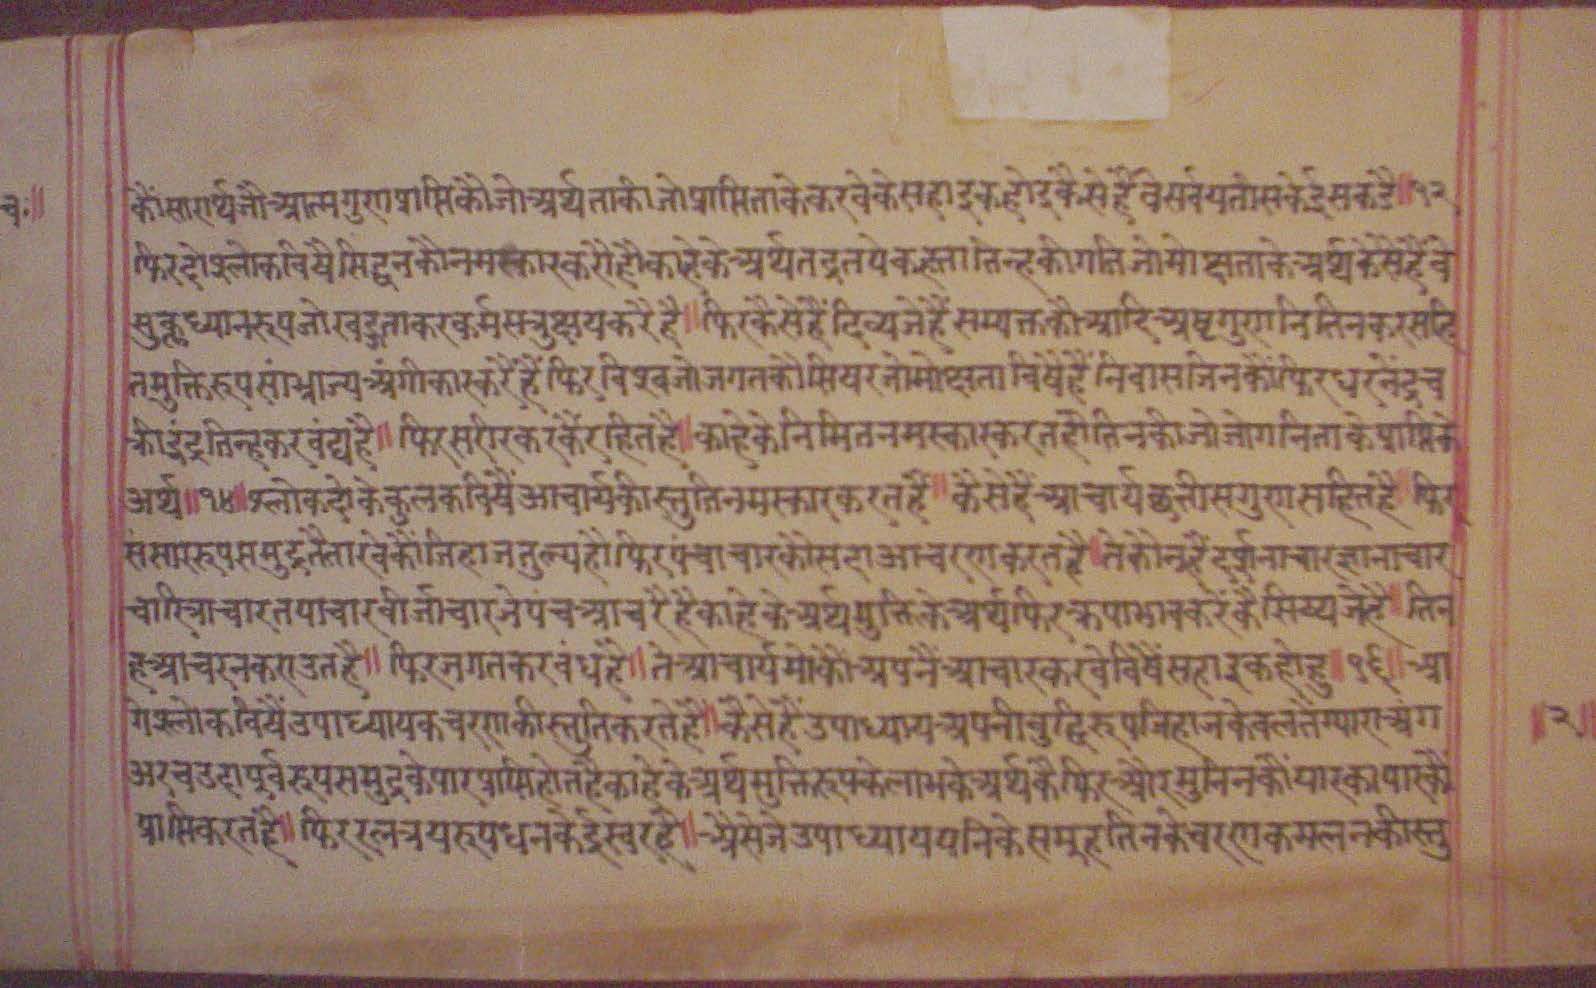 च॰॥
कौं सारार्थ जौ आत्मगुण प्राप्ति कौ जो अर्थ ताकी जो प्राप्ति ताके करवे के सहाइक होइ कैसे हैं वे सर्व यतीसके ईस कहै॥१२
फिर दो श्लोक विषै सिद्धन कौ नमस्कार करौ हौ काहे के अर्थ तद्रतपे कहता तिन्ह की गति जो मोक्ष ताके अर्थ कैसे हैं वे
सुक्लध्यान रूप जो खड्ग ता कर कर्म सत्रु क्षय करे है॥ फिर कैसे हैं दिव्य जे हैं सम्यक्त कौ आदि अष्ट गुण नि तिन कर सहि
त मुक्ति रूप सांम्राज्य अंगीकार करें हैं फिर विश्व जो जगत कौ सिषर जो मोक्ष ता विषै हैं निवास जिन कौं फिर धरनेंद्र च
की इंद्र तिन्ह कर वंद्य है॥ फिर सरीर कर कैं रहित है॥ काहे के निमित नमस्कार करत हौ तिन की जो जोगनि ताके प्राप्ति के
अर्थ॥१४॥ श्लोक दो के कुलक विषैं आचार्य की स्तुति नमस्कार करत हैं॥ कैसे हैं आचार्य छत्तीस गुण सहित है॥ फिर
संसार रूप समुद्र तै तारवे कौं जिहाज तुल्य हौ फिर पंचाचार कौ सदा आचरण करत है॥ ते कौन हैं दर्शनाचार ज्ञानाचार
चारित्राचार तपाचार वीर्जाचार जे पंच आचरै है काहे के अर्थ मुक्ति के अर्थ फिर क्रपाभाव करें कै सिष्य जे है॥ तिन
ह आचरन कराउत है॥ फिर जगत कर वंध है॥ ते आचार्य मो कौ अपनैं आचार करवे विषैं सहाइक होहु॥१६॥ आ
गे श्लोक विषैं उपाध्याय क चरण की स्तुति करते है॥ कैसे हैं उपाध्याय अपनी बुद्धि रूप जिहाज के वल तें ग्यारा अंग
अर चउदा पूर्व रूप समुद्र के पार प्राप्ति होत है काहे के अर्थ मुक्ति रूप के लाभ के अर्थ कै फिर और मुनिन कौं पार का पार कौं
प्राप्ति करत है॥ फिर रत्नत्रय रूप धन कै ईस्वर है॥ अैसे जे उपाध्याय यनि के समूह तिन के चरण कमलन की स्तु
॥२॥